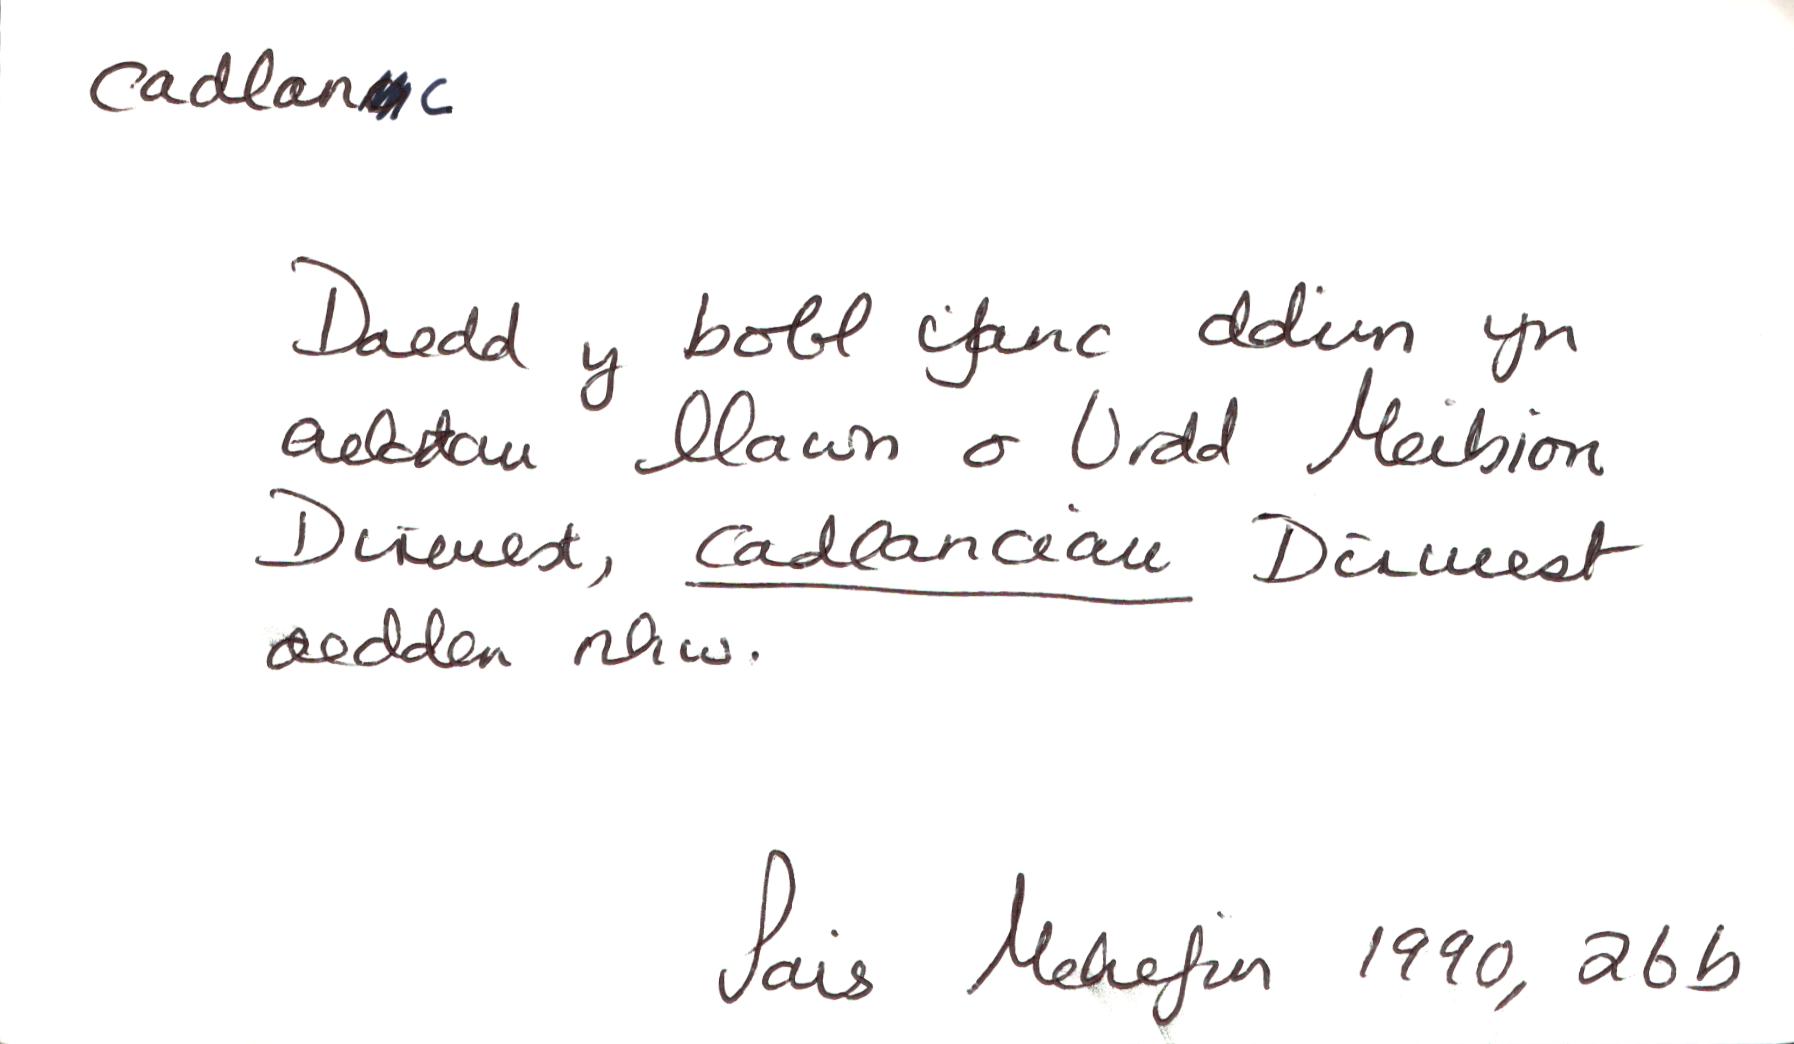 cadlanc
Doedd y bobl ifanc ddim yn
aelodau llawn o Urdd Meibion
Dirwest, cadlanciau Dirwest
oedden nhw.
Pais Mehefin 1990, 26b